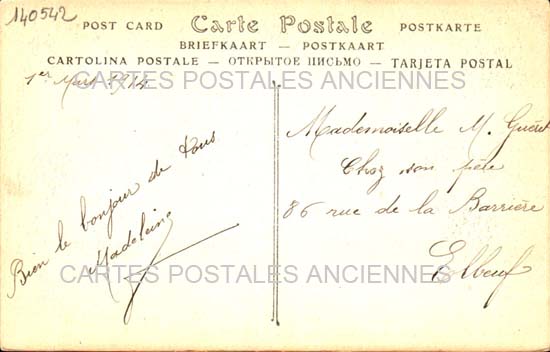 140542
POST CARD Carte Postale POSTKARTE
BRIEFKAART — POSTKAART
CARTOLINA POSTALE — ОТКРЫТОЕ ПИСЬМО — TARJETA POSTAL
1er Mars 1914
CARTES POSTALES ANCIENNES
Bien le bonjour de tous
Madeleine
Mademoiselle M. Guéret
Chez son père
86 rue de la Barrière
Elbeuf
CARTES POSTALES ANCIENNES